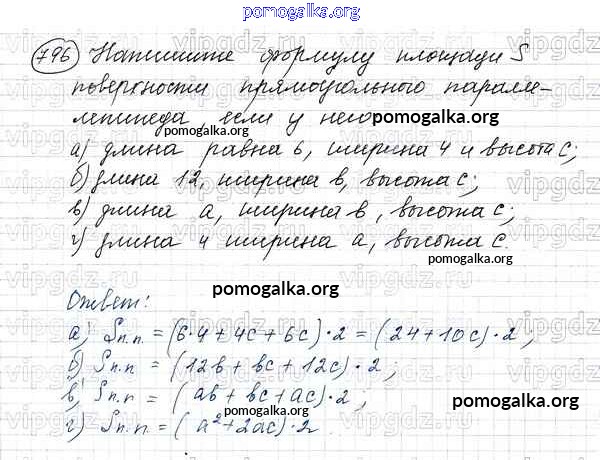 pomogalka.org
796 Напишите формулу площади S
поверхности прямоугольного паралле-
лепипеда, если у него
pomogalka.org
pomogalka.org
а) длина равна 6, ширина 4 и высота с;
б) длина 12, ширина в, высота с;
в) длина а, ширина в, высота с;
г) длина 4 ширина а, высота с.
pomogalka.org
pomogalka.org
Ответ:
а) Sп.п. = (6·4+4с+6с)·2 = (24+10с)·2;
б) Sп.п. = (12в + вс + 12с)·2;
в) Sп.п = (ав + вс + ас)·2;
pomogalka.org
pomogalka.org
г) Sп.п = (а²+2ас)·2.
vipgdz.ru